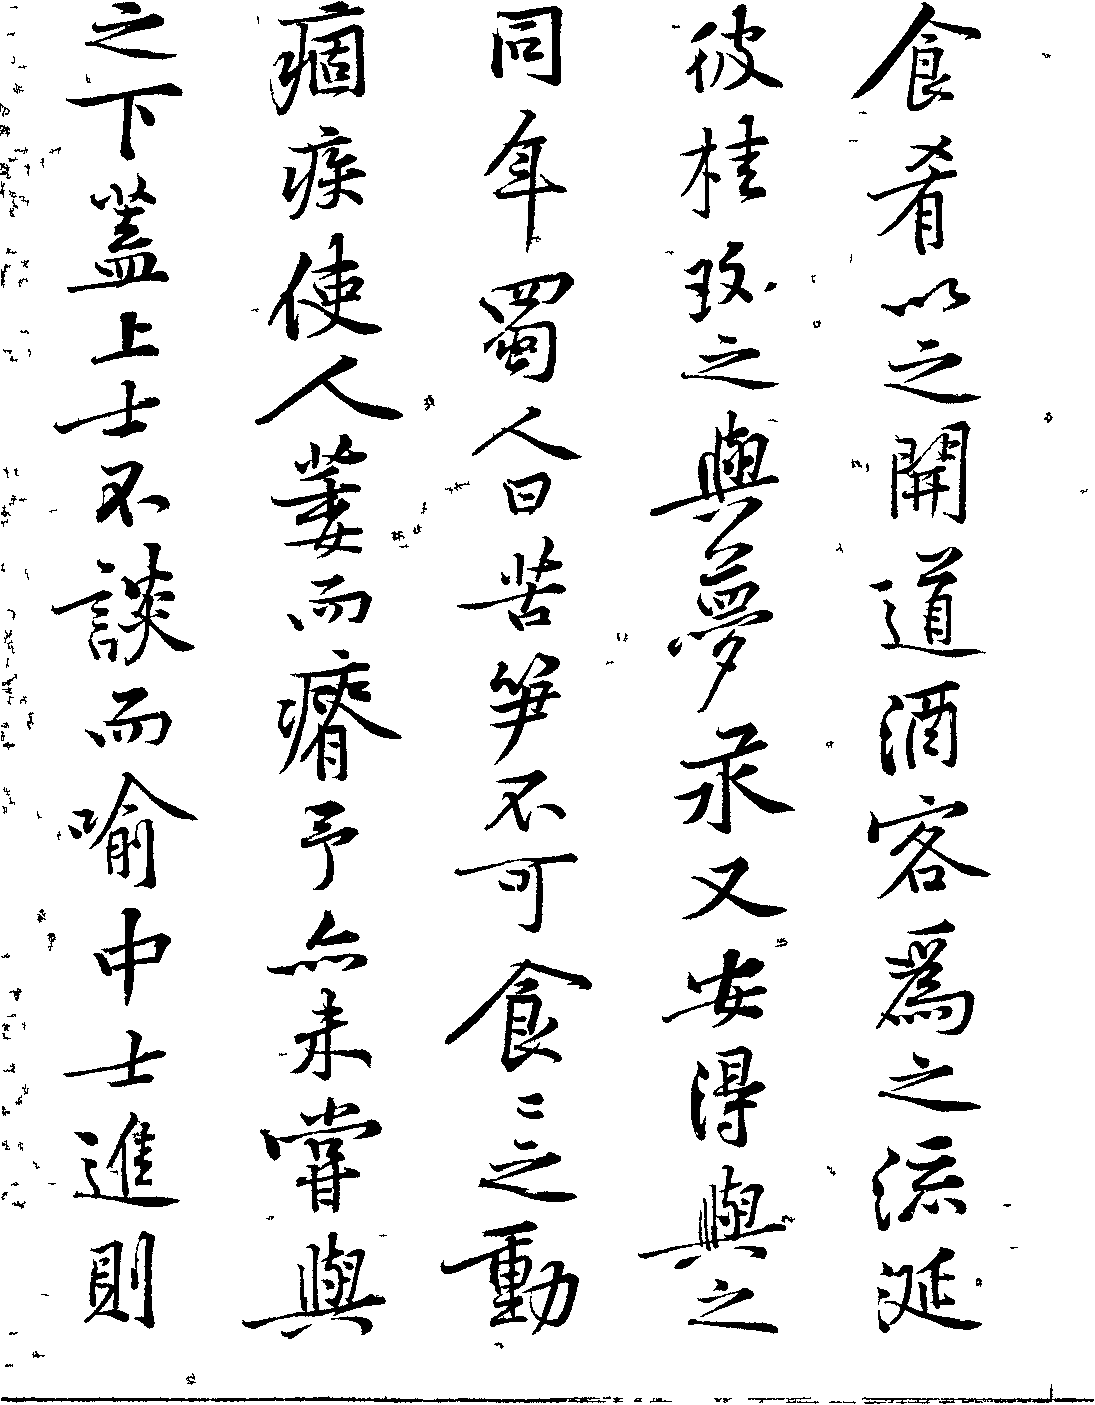 食肴以之開道酒客爲之流涎
彼桂玫之與夢汞又安得與之
同年蜀人曰苦笋不可食〻之動
痼疾使人萎而瘠予亦未嘗與
之下蓋上士不談而喻中士進則